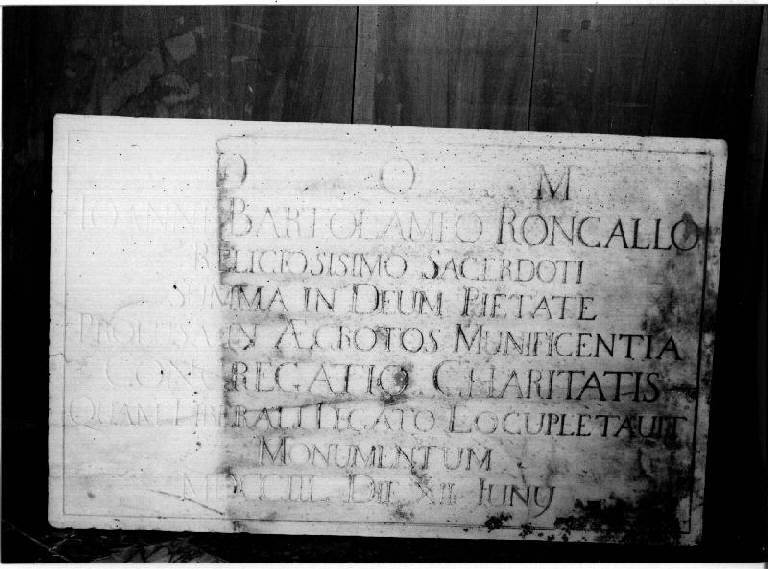 D O M
IOANNI BARTOLAMEO RONCALLO
RELIGIOSISIMO SACERDOTI
SUMMA IN DEUM PIETATE
PROFUSA IN ÆGROTOS MUNIFICENTIA
CONGREGATIO CHARITATIS
QUAM LIBERALI LEGATO LOCUPLETAUIT
MONUMENTUM
DIE XII IUNY